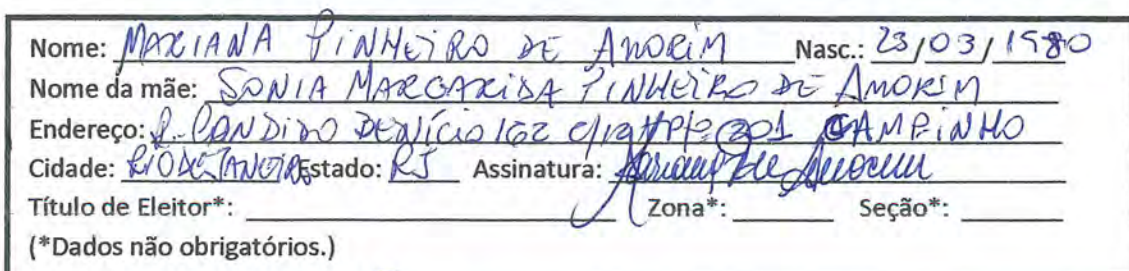 Nome: MARIANA PINHEIRO DE AMORIM Nasc.: 23/03/1980
Nome da mãe: SONIA MARGARIDA PINHEIRO DE AMORIM
Endereço: R. CANDIDO BENÍCIO 162 301 CAMPINHO
Cidade: RIO DE JANEIRO Estado: RJ Assinatura:
Título de Eleitor*: Zona*: Seção*:
(*Dados não obrigatórios.)